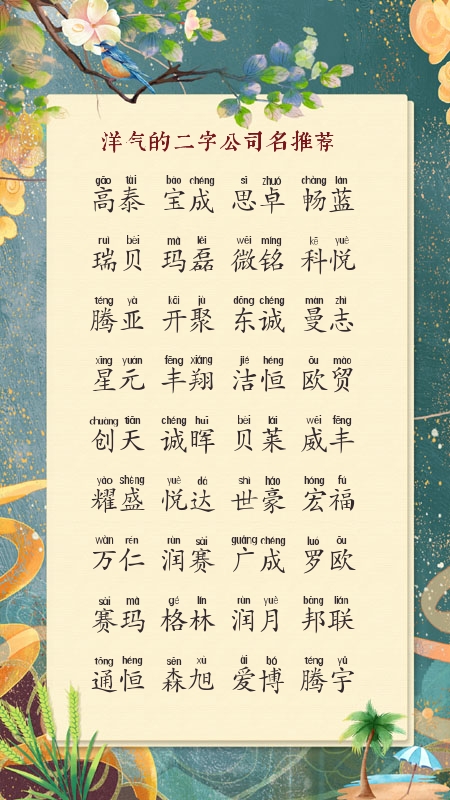 洋气的二字公司名推荐
gāo tài bǎo chéng sī zhuó chàng lán
高泰 宝成 思卓 畅蓝
ruì bèi mǎ lěi wēi míng kē yuè
瑞贝 玛磊 微铭 科悦
téng yà kāi jù dōng chéng màn zhì
腾亚 开聚 东诚 曼志
xīng yuán fēng xiáng jié héng ōu mào
星元 丰翔 洁恒 欧贸
chuàng tiān chéng huī bèi lái wēi fēng
创天 诚晖 贝莱 威丰
yào shèng yuè dá shì háo hóng fú
耀盛 悦达 世豪 宏福
wàn rén rùn sài guǎng chéng luó ōu
万仁 润赛 广成 罗欧
sài mǎ gé lín rùn yuè bāng lián
赛玛 格林 润月 邦联
tōng héng sēn xù ài bó téng yǔ
通恒 森旭 爱博 腾宇